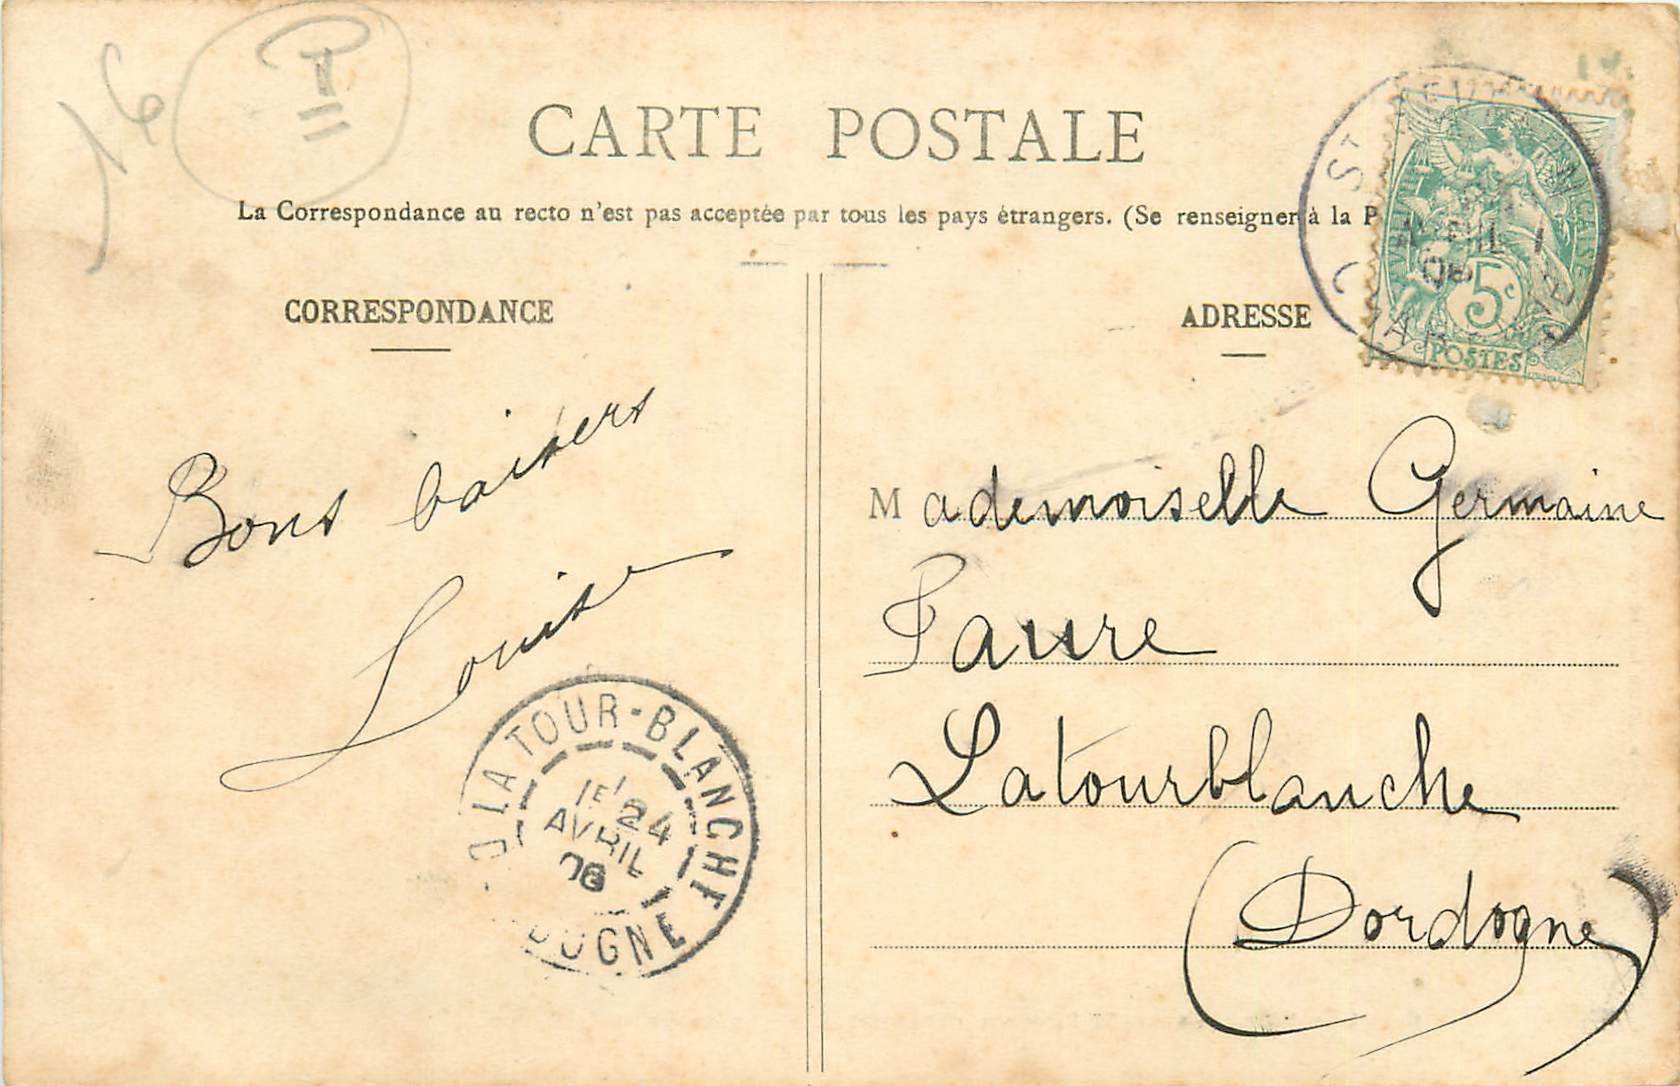 16
CARTE POSTALE
La Correspondance au recto n'est pas acceptée par tous les pays étrangers. (Se renseigner à la P
CORRESPONDANCE
ADRESSE
5c
POSTES
AVRIL
Bons baisers
Louise
Mademoiselle Germaine
Faure
Latourblanche
(Dordogne)
LA TOUR-BLANCHE
24
AVRIL
08
DOGNE